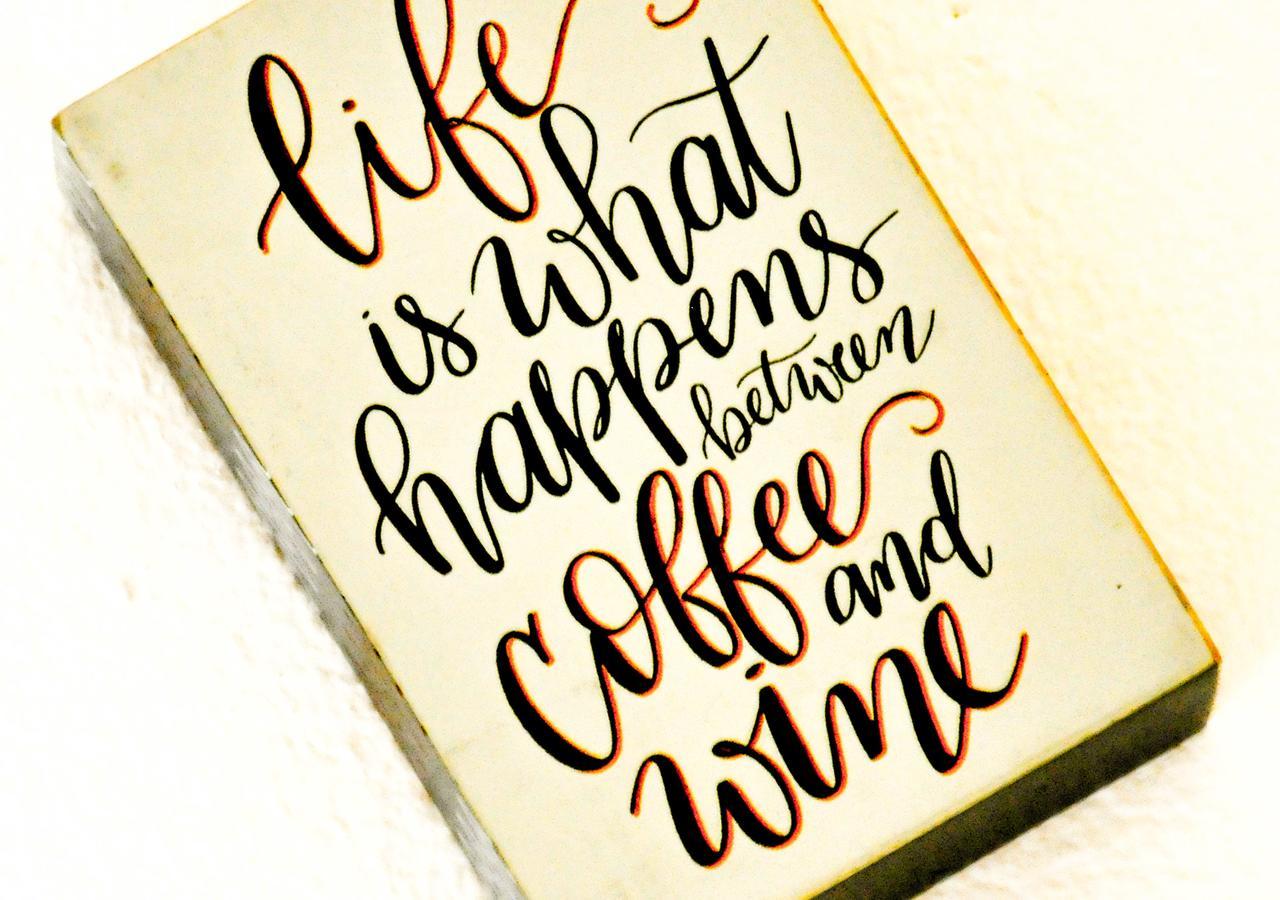 life
is what
happens
between
coffee
and
wine